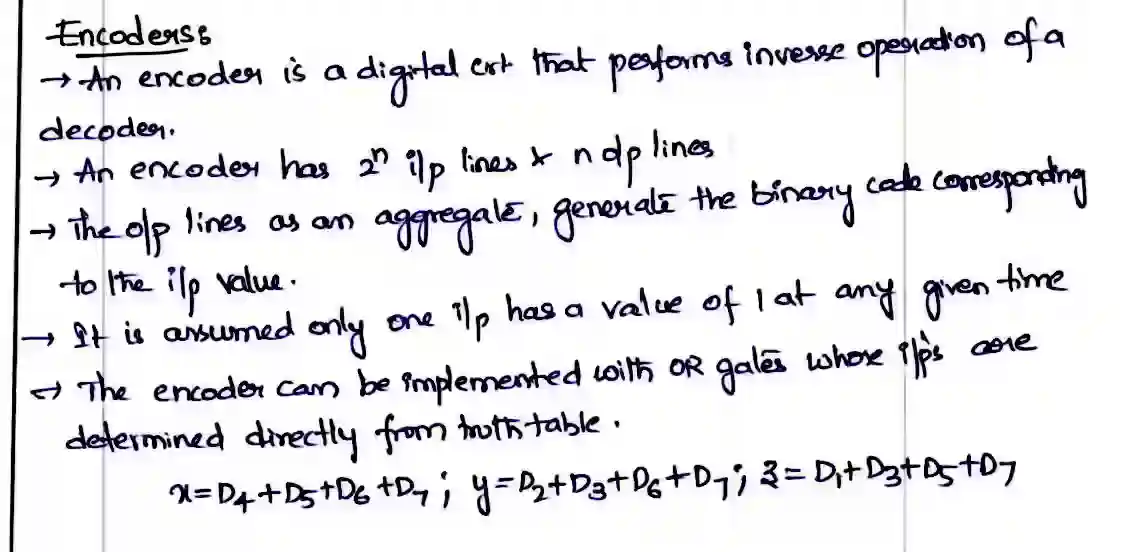 Encoders:
→ An encoder is a digital ckt that performs inverse operation of a
decoder.
→ An encoder has 2ⁿ i/p lines & n o/p lines
→ The o/p lines as an aggregate, generate the binary code corresponding
to the i/p value.
→ It is assumed only one i/p has a value of 1 at any given time
→ The encoder can be implemented with OR gates whose i/p's are
determined directly from truth table.
x = D₄+D₅+D₆+D₇ ; y = D₂+D₃+D₆+D₇ ; z = D₁+D₃+D₅+D₇